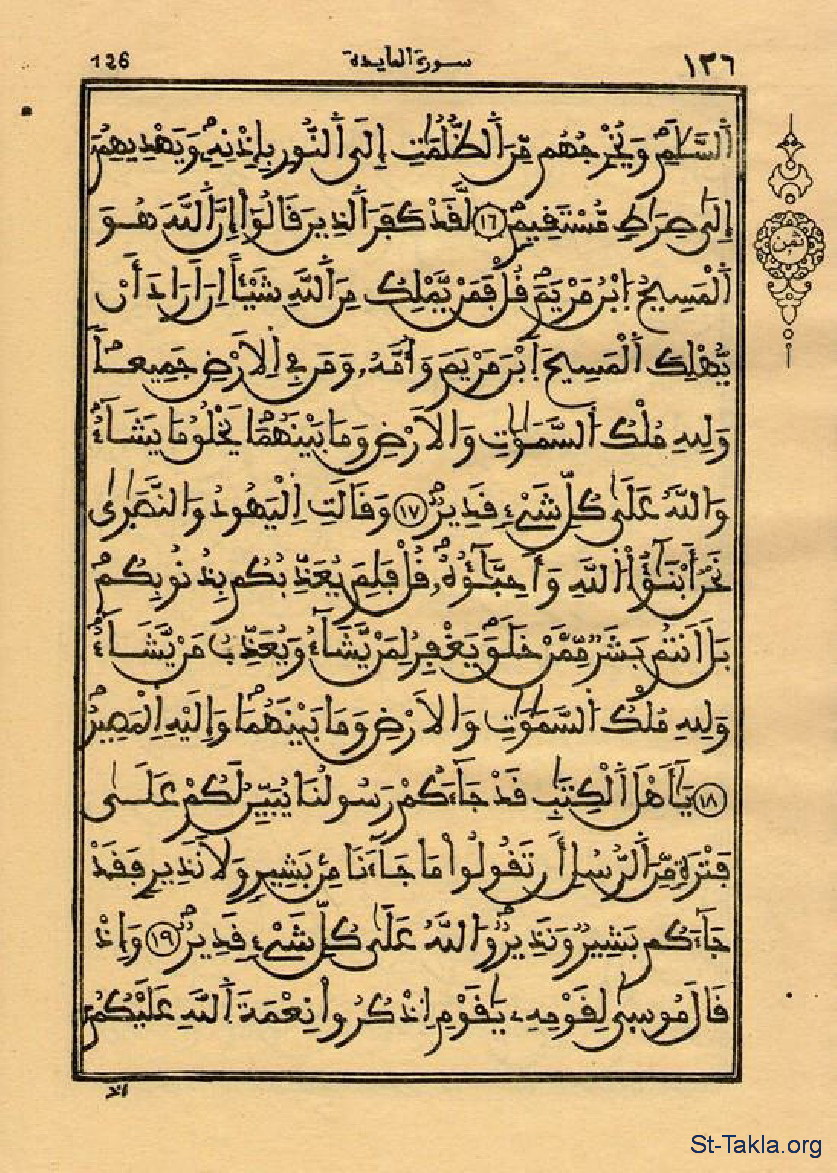 126 سورة المايدة ١٢٦
اَ۬لسَّلَٰمِ وَيُخْرِجُهُم مِّنَ اَ۬لظُّلُمَٰتِ إِلَي اَ۬لنُّورِ بِإِذْنِهِۦ وَيَهْدِيهِمُۥٓ
إِلَىٰ صِرَٰطٖ مُّسْتَقِيمٖ ١٦ لَّقَدْ كَفَرَ اَ۬لذِينَ قَالُوٓاْ إِنَّ اَ۬للَّهَ هُوَ
ثمن
اَ۬لْمَسِيحُ اُ۪بْنُ مَرْيَمَ قُلْ فَمَنْ يَّمْلِكُ مِنَ اَ۬للَّهِ شَيْـٔاً اِنَ اَرَادَ أَنْ
يُّهْلِكَ اَ۬لْمَسِيحَ اَ۪بْنَ مَرْيَمَ وَأُمَّهُۥ وَمَن فِي اِ۬لَارْضِ جَمِيعاٗ
وَلِلهِ مُلْكُ اُ۬لسَّمَٰوَٰتِ وَالَارْضِ وَمَا بَيْنَهُمَا يَخْلُقُ مَا يَشَآءُ
وَاللَّهُ عَلَىٰ كُلِّ شَےْءٖ قَدِيرٞ ١٧ وَقَالَتِ اِ۬لْيَهُودُ وَالنَّصَٰرَىٰ
نَحْنُ أَبْنَٰٓؤُاْ اُ۬للَّهِ وَأَحِبَّٰٓؤُهُۥ قُلْ فَلِمَ يُعَذِّبُكُم بِذُنُوبِكُم
بَلَ اَنتُم بَشَرٞ مِّمَّنْ خَلَقَ يَغْفِرُ لِمَنْ يَّشَآءُ وَيُعَذِّبُ مَنْ يَّشَآءُ
وَلِلهِ مُلْكُ اُ۬لسَّمَٰوَٰتِ وَالَارْضِ وَمَا بَيْنَهُمَا وَإِلَيْهِ اِ۬لْمَصِيرُ
١٨ يَٰٓأَهْلَ اَ۬لْكِتَٰبِ قَدْ جَآءَكُمْ رَسُولُنَا يُبَيِّنُ لَكُمْ عَلَىٰ
فَتْرَةٖ مِّنَ اَ۬لرُّسُلِ أَن تَقُولُواْ مَا جَآءَنَا مِنۢ بَشِيرٖ وَلَا نَذِيرٖ فَقَدْ
جَآءَكُم بَشِيرٞ وَنَذِيرٞ وَاللَّهُ عَلَىٰ كُلِّ شَےْءٖ قَدِيرٞ ١٩ وَإِذْ
قَالَ مُوسَىٰ لِقَوْمِهِۦ يَٰقَوْمِ اِ۟ذْكُرُواْ نِعْمَةَ اَ۬للَّهِ عَلَيْكُمُۥٓ
St-Takla.org